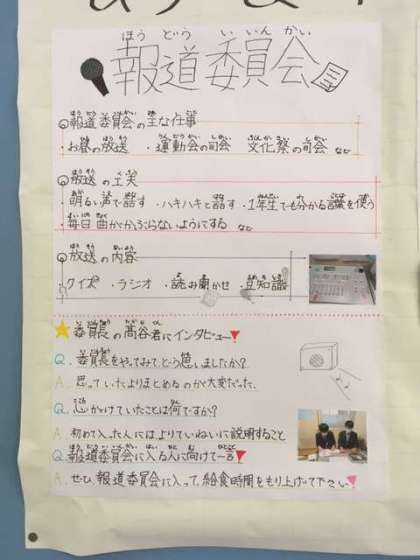 報道委員会
◎報道委員会の主な仕事
・お昼の放送 ・運動会の司会 文化祭の司会 など
◎放送の工夫
・明るい声で話す ・ハキハキと話す ・1年生でも分かる言葉を使う
・毎日曲がかぶらないようにする など
◎放送の内容
クイズ ・ラジオ ・読み聞かせ ・豆知識
★委員長の髙谷君にインタビュー!
Q.委員長をやってみてどう思いましたか?
A.思っていたよりまとめるのが大変だった。
Q.心がけていたことは何ですか?
A.初めて入った人にはよりていねいに説明すること
Q.報道委員会に入る人に向けて一言
A.ぜひ、報道委員会に入って、給食時間をもり上げて下さい!